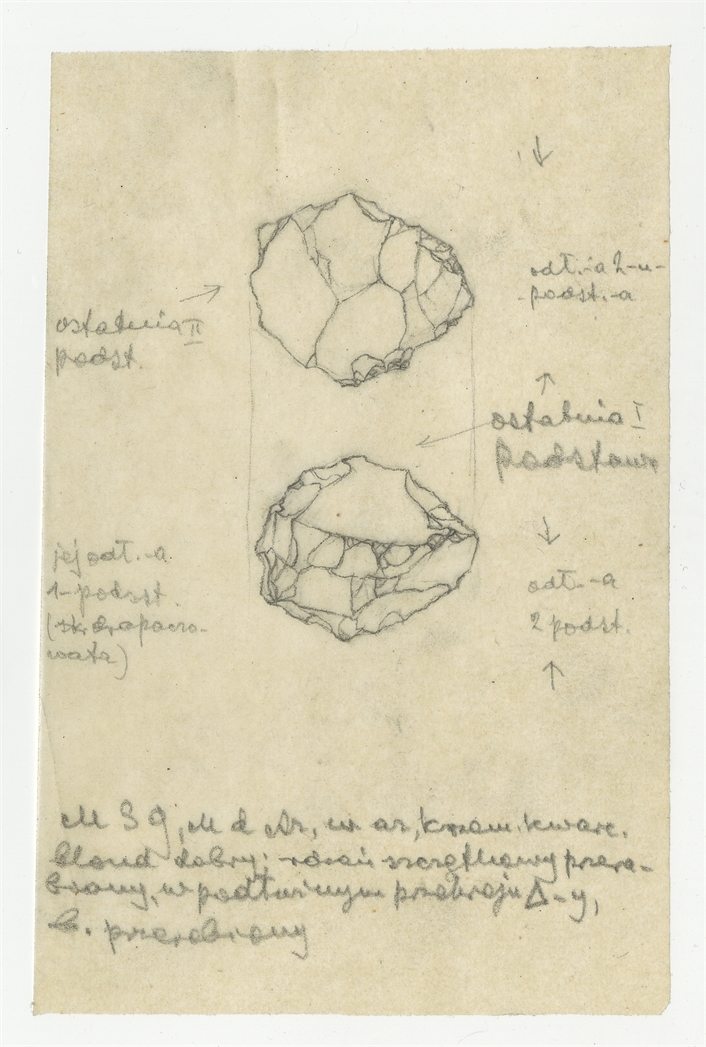 odł.-a 2-u-
-podst.-a
ostatnia II
podst.
ostatnia I
podstawa
jej odł.-a
1-podst.
(skdrapaczo-
wata)
odł.-a
2 podst.
M 39, M d Az, w az, krzem. kwarc.
blond dobry; rdzeń szczątkowy przera-
biany, w podłużnym przekroju Δ-y,
b. przerobiony